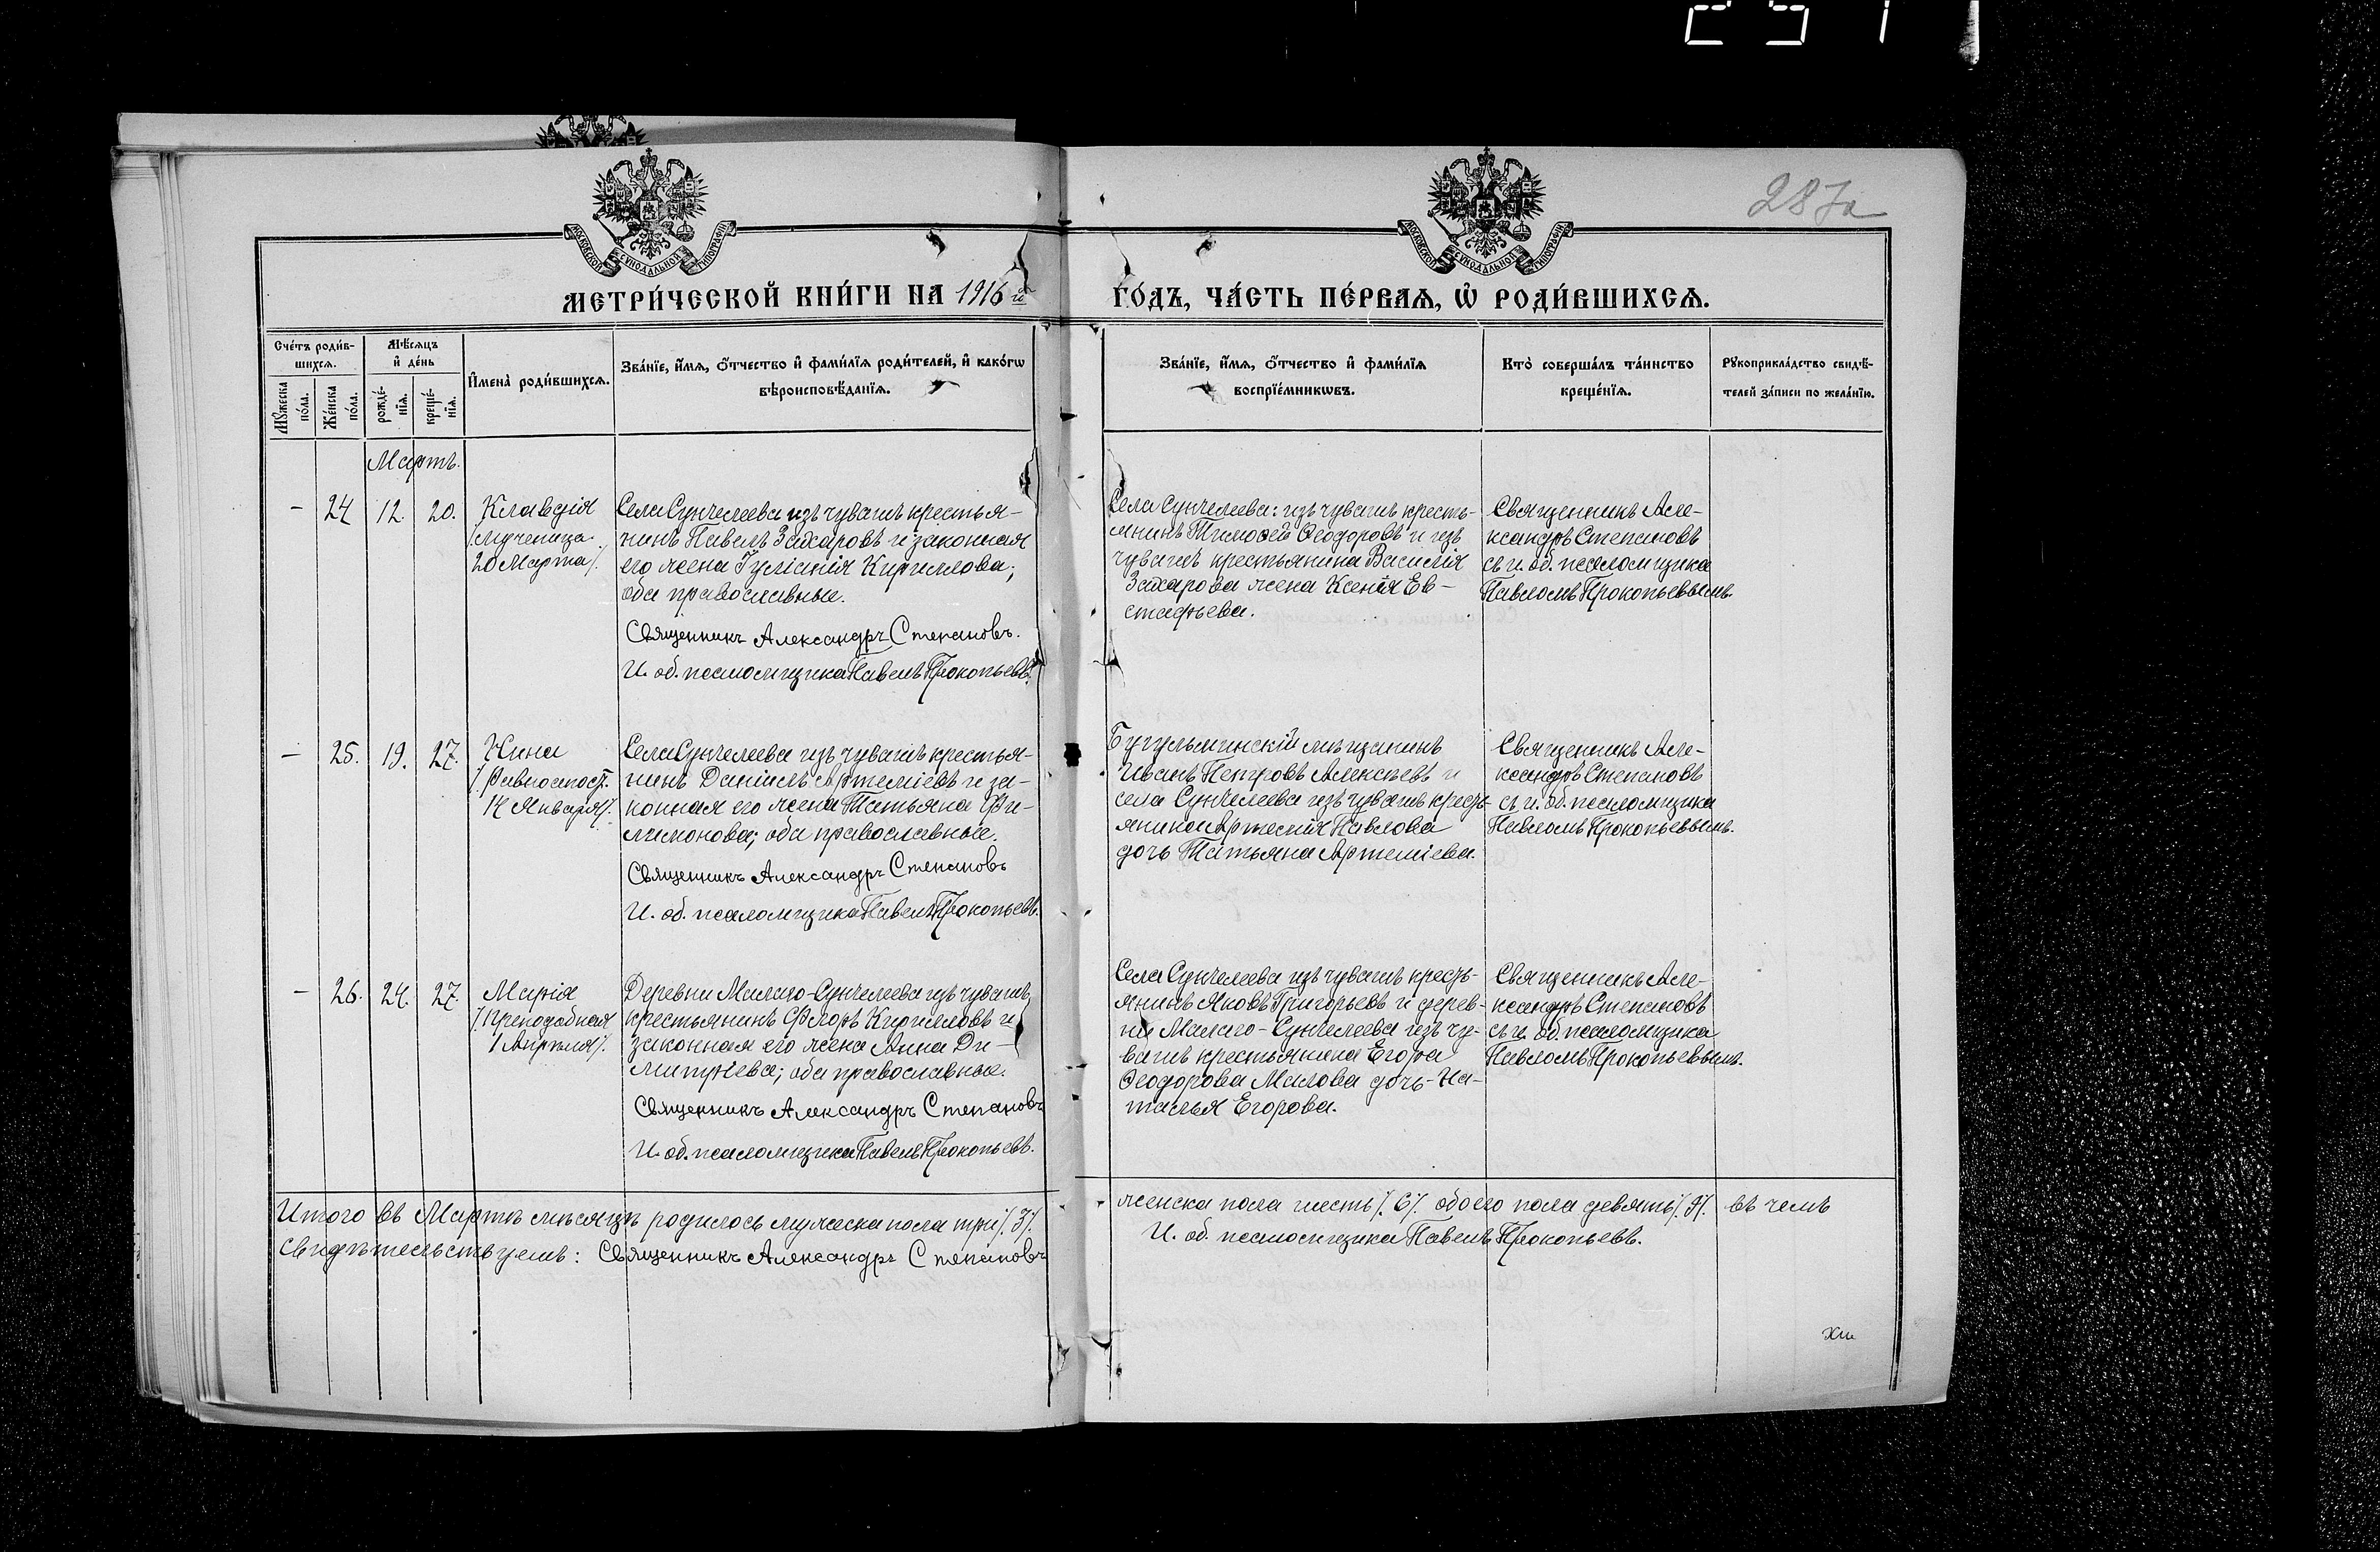 287а
МОСКОВСКОЙ СѴНОДАЛЬНОЙ ТИПОГРАФІИ
МОСКОВСКОЙ СѴНОДАЛЬНОЙ ТИПОГРАФІИ
МЕТРИ́ЧЕСКОЙ КНИ́ГИ НА 1916 й ГО́ДЪ, ЧА́СТЬ ПЕ́РВАѦ, Ѡ҆ РОДИ́ВШИХСѦ.
Сче́тъ роди́в-
шихсѧ.
Мѣ́сѧцъ
и҆ де́нь
Мꙋ́жеска
по́ла.
Же́нска
по́ла.
рожде́-
нїѧ.
креще́-
нїѧ.
И҆мена̀ роди́вшихсѧ.
Зва́нїе, и҆́мѧ, ѻ҆́тчество и҆ фами́лїѧ роди́телей, и҆ како́гѡ
вѣроисповѣ́данїѧ.
Зва́нїе, и҆́мѧ, ѻ҆́тчество и҆ фами́лїѧ
воспрїе́мникѡвъ.
Кто̀ соверша́лъ та́инство
креще́нїѧ.
Рꙋкоприкла́дство свидѣ́-
телей за́писи по жела́нїю.
Мартъ.
– 24 12. 20.
Клавдія
/мученица
20 Марта/.
Села Сунчелеева изъ чувашъ крестья-
нинъ Павелъ Захаровъ и законная
его жена Гуліанія Кириллова;
оба православные.
Священникъ Александръ Степановъ.
И. об. псаломщика Павелъ Прокопьевъ.
Села Сунчелеева: изъ чувашъ кресть-
янинъ Тимоѳей Ѳеодоровъ и изъ
чувашъ крестьянина Василія
Захарова жена Ксенія Ев-
стафьева.
Священникъ Але-
ксандръ Степановъ
съ и. об. псаломщика
Павломъ Прокопьевымъ.
– 25. 19. 27.
Нина
/.равноапост.
14 Января/.
Села Сунчелеева изъ чувашъ крестья-
нинъ Даніилъ Артеміевъ и за-
конная его жена Татьяна Фи-
лимонова; оба православные.
Священникъ Александръ Степановъ
И. об. псаломщика Павелъ Прокопьевъ.
Бугульминскій мѣщанинъ
Иванъ Петровъ Алексѣевъ и
села Сунчелеева изъ чувашъ кресть-
янина Артемія Павлова
дочь Татьяна Артеміева.
Священникъ Але-
ксандръ Степановъ
съ и. об. псаломщика
Павломъ Прокопьевымъ.
– 26. 24. 27.
Марія
/.Преподобная
1 Апрѣля/.
Деревни Малаго-Сунчелеева изъ чувашъ
крестьянинъ Флоръ Кирилловъ и
законная его жена Анна Ди-
митріева; оба православные.
Священникъ Александръ Степановъ
И. об. псаломщика Павелъ Прокопьевъ.
Села Сунчелеева изъ чувашъ кресть-
янинъ Яковъ Григорьевъ и дерев-
ни Малаго-Сунчелеева изъ чу-
вашъ крестьянина Егора
Ѳеодорова Малова дочь-На-
талья Егорова.
Священникъ Але-
ксандръ Степановъ
съ и. об. псаломщика
Павломъ Прокопьевымъ.
Итого въ Мартѣ мѣсяцѣ родилось мужеска пола три/.3/. женска пола шесть/.6/. обоего пола девять/.9/. въ чемъ
свидѣтельствуемъ: Священникъ Александръ Степановъ И. об. псаломщика Павелъ Прокопьевъ.